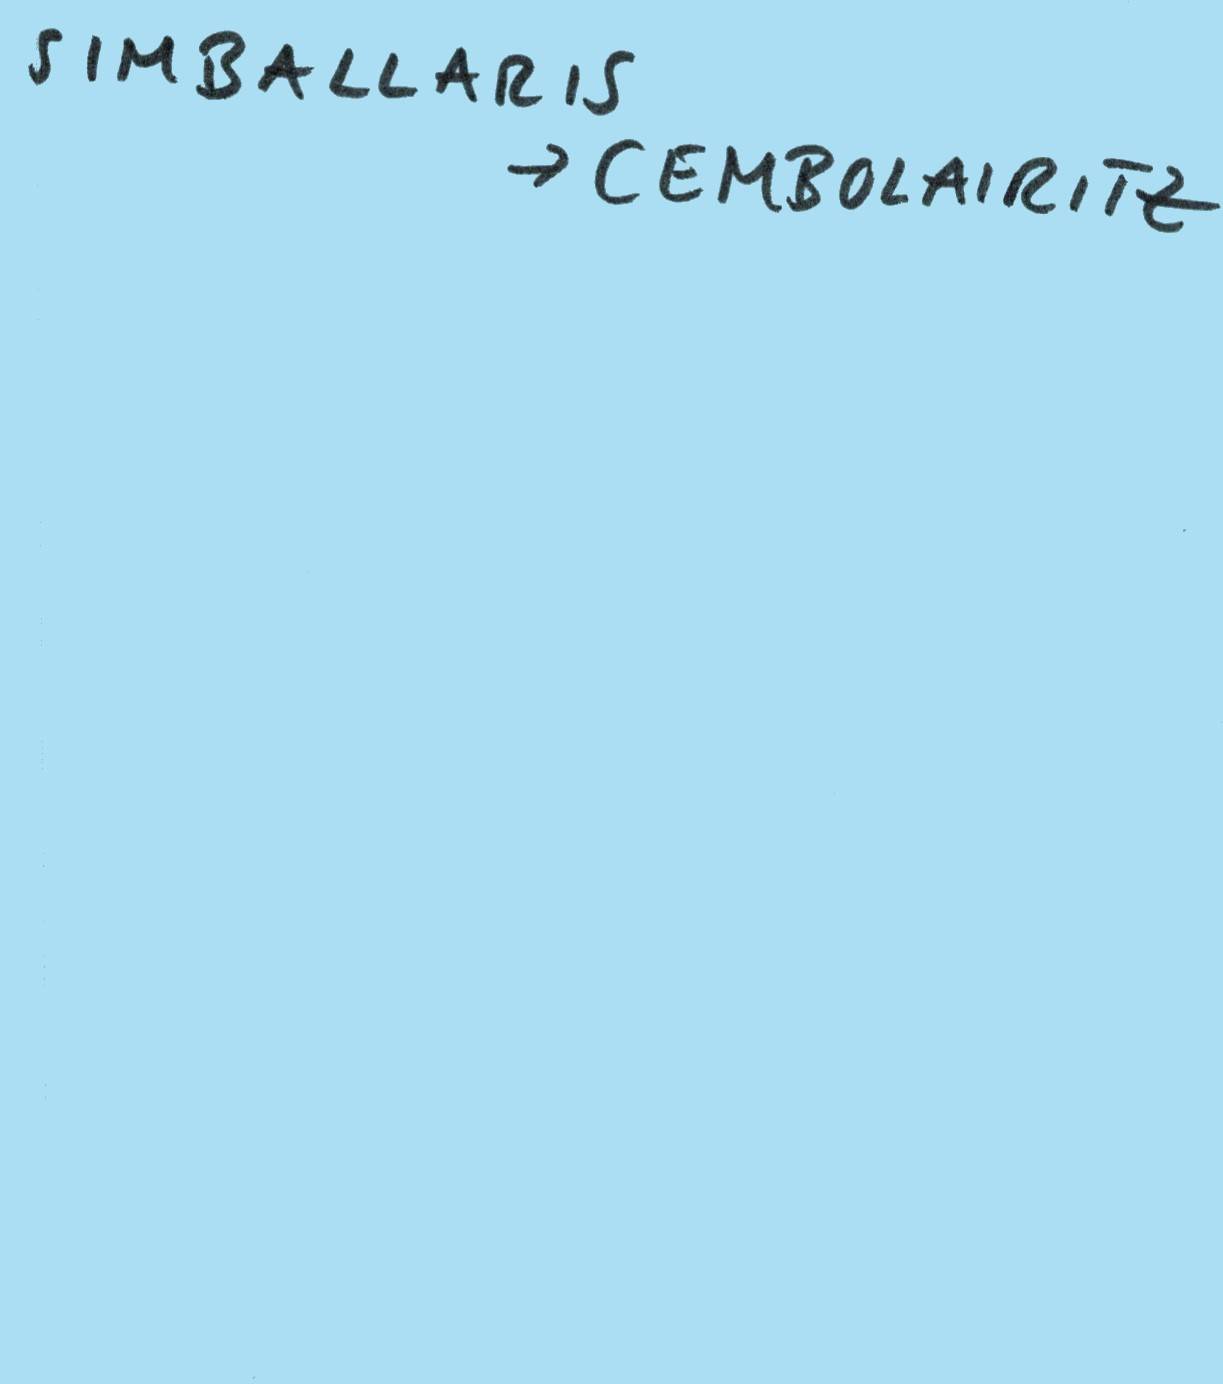 SIMBALLARIS
→ CEMBOLAIRITZ